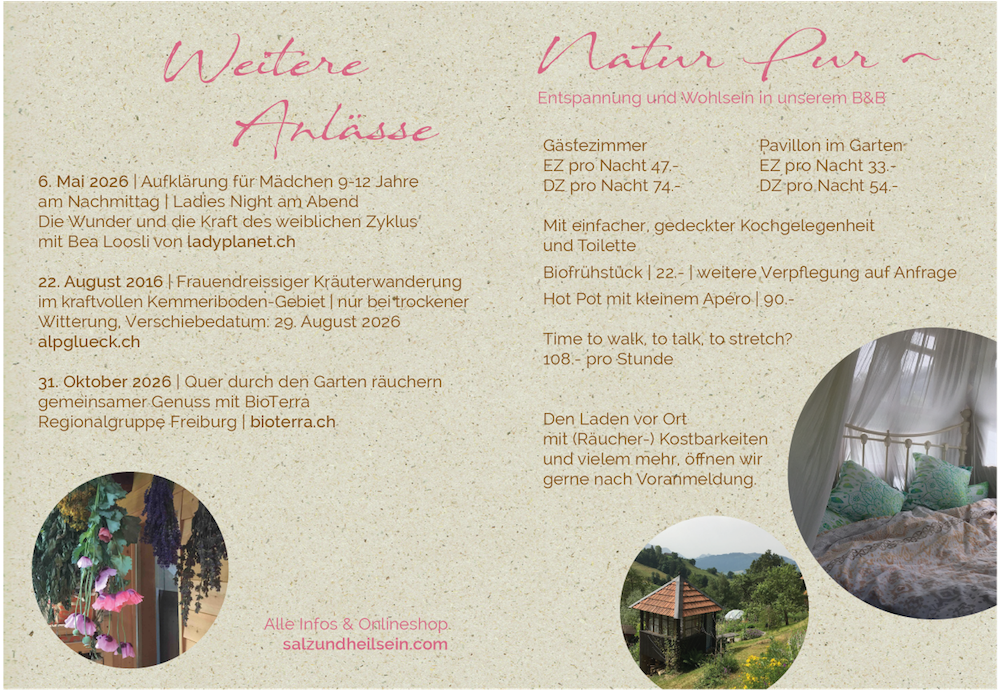 Weitere
Anlässe
6. Mai 2026 | Aufklärung für Mädchen 9-12 Jahre
am Nachmittag | Ladies Night am Abend
Die Wunder und die Kraft des weiblichen Zyklus
mit Bea Loosli von ladyplanet.ch
22. August 2016 | Frauendreissiger Kräuterwanderung
im kraftvollen Kemmeriboden-Gebiet | nur bei trockener
Witterung, Verschiebedatum: 29. August 2026
alpglueck.ch
31. Oktober 2026 | Quer durch den Garten räuchern
gemeinsamer Genuss mit BioTerra
Regionalgruppe Freiburg | bioterra.ch
Alle Infos & Onlineshop.
salzundheilsein.com
Natur Pur ~
Entspannung und Wohlsein in unserem B&B
Gästezimmer
EZ pro Nacht 47.-
DZ pro Nacht 74.-
Pavillon im Garten
EZ pro Nacht 33.-
DZ pro Nacht 54.-
Mit einfacher, gedeckter Kochgelegenheit
und Toilette
Biofrühstück | 22.- | weitere Verpflegung auf Anfrage
Hot Pot mit kleinem Apéro | 90.-
Time to walk, to talk, to stretch?
108.- pro Stunde
Den Laden vor Ort
mit (Räucher-) Kostbarkeiten
und vielem mehr, öffnen wir
gerne nach Voranmeldung.